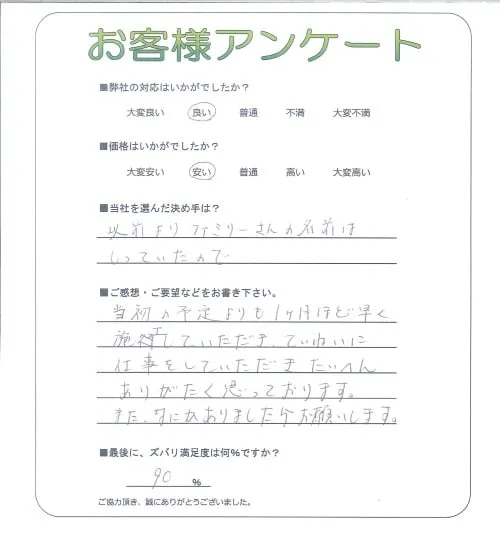 お客様アンケート
■弊社の対応はいかがでしたか？
大変良い 良い 普通 不満 大変不満
■価格はいかがでしたか？
大変安い 安い 普通 高い 大変高い
■当社を選んだ決め手は？
以前より ファミリーさんの名前は
しっていたので
■ご感想・ご要望などをお書き下さい。
当初の予定よりも1ヶ月ほど早く
施工していただき、ていねいに
仕事をしていただき たいへん
ありがたく思っております。
また、なにかありましたらお願いします。
■最後に、ズバリ満足度は何％ですか？
90 %
ご協力頂き、誠にありがとうございました。